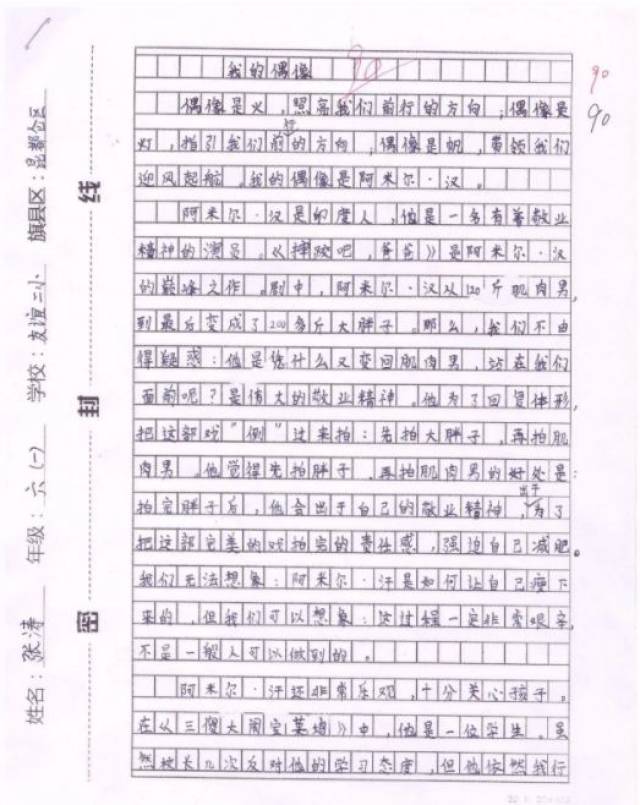 我的偶像
90
90
偶像是火，照亮我们前行的方向；偶像是
灯，指引我们前行的方向，偶像是帆，带领我们
迎风起航。我的偶像是阿米尔·汉。
阿米尔·汉是印度人，他是一名有着敬业
精神的演员。《摔跤吧，爸爸》是阿米尔·汉
的巅峰之作。剧中，阿米尔·汉从120斤肌肉男，
到最后变成了200多斤大胖子。那么，我们不由
得疑惑：他是凭什么又变回肌肉男，站在我们
面前呢？是伟大的敬业精神。他为了回复体形，
把这部戏"倒"过来拍：先拍大胖子，再拍肌
肉男。他觉得先拍胖子，再拍肌肉男的好处是：
拍完胖子后，他会出于自己的敬业精神，出于为了
把这部完美的戏拍完的责任感，强迫自己减肥。
我们无法想象：阿米尔·汗是如何让自己瘦下
来的，但我们可以想象：这过程一定非常艰辛，
不是一般人可以做到的。
阿米尔·汗还非常乐观，十分关心孩子。
在《三傻大闹宝莱坞》中，他是一位学生。虽
然校长几次反对他的学习态度，但他依然我行
姓名：张涛 年级：六（一） 学校：友谊二小 旗县区：昆都仑区
密 封 线